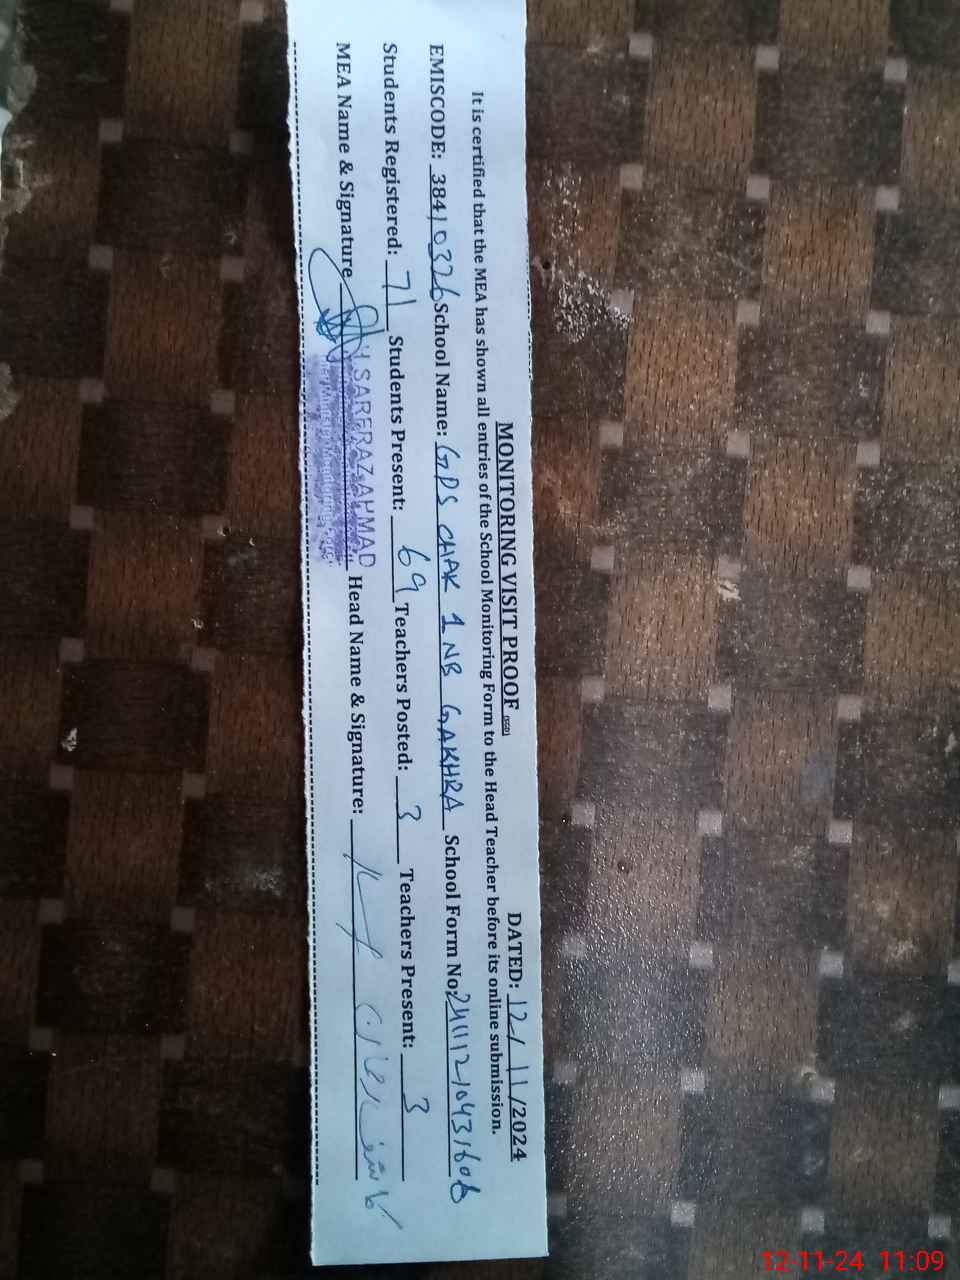 MONITORING VISIT PROOF (SSO)
DATED: 12/11/2024
It is certified that the MEA has shown all entries of the School Monitoring Form to the Head Teacher before its online submission.
EMISCODE: 38410326 School Name: GPS CHAK 1 NB GAKHRA School Form No: 24111210431606
Students Registered: 71 Students Present: 69 Teachers Posted: 3 Teachers Present: 3
MEA Name & Signature SARFRAZ AHMAD Head Name & Signature:
12-11-24 11:09